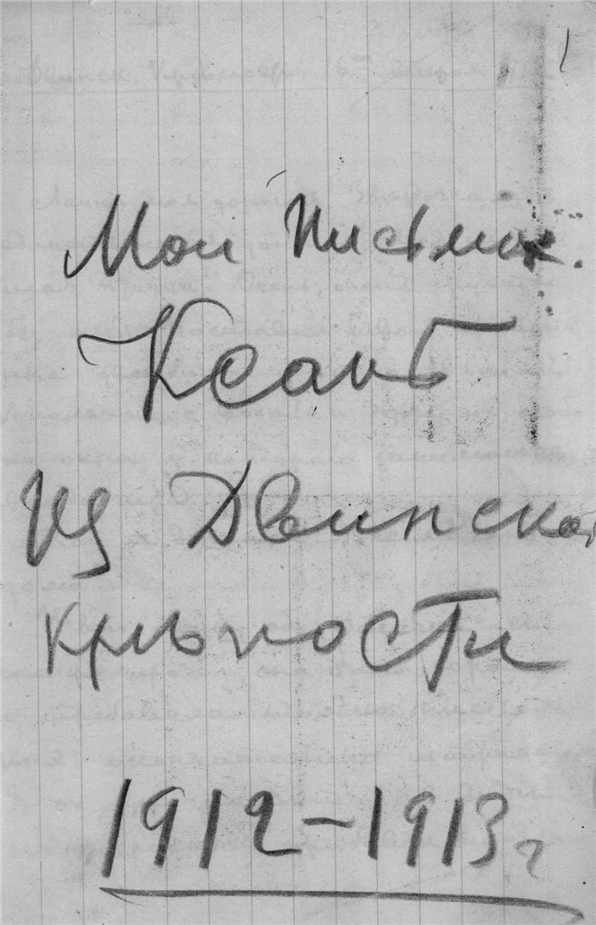 1
Мои письма.
Ксанѣ
Из Двинской
крѣпости
1912-1913 г